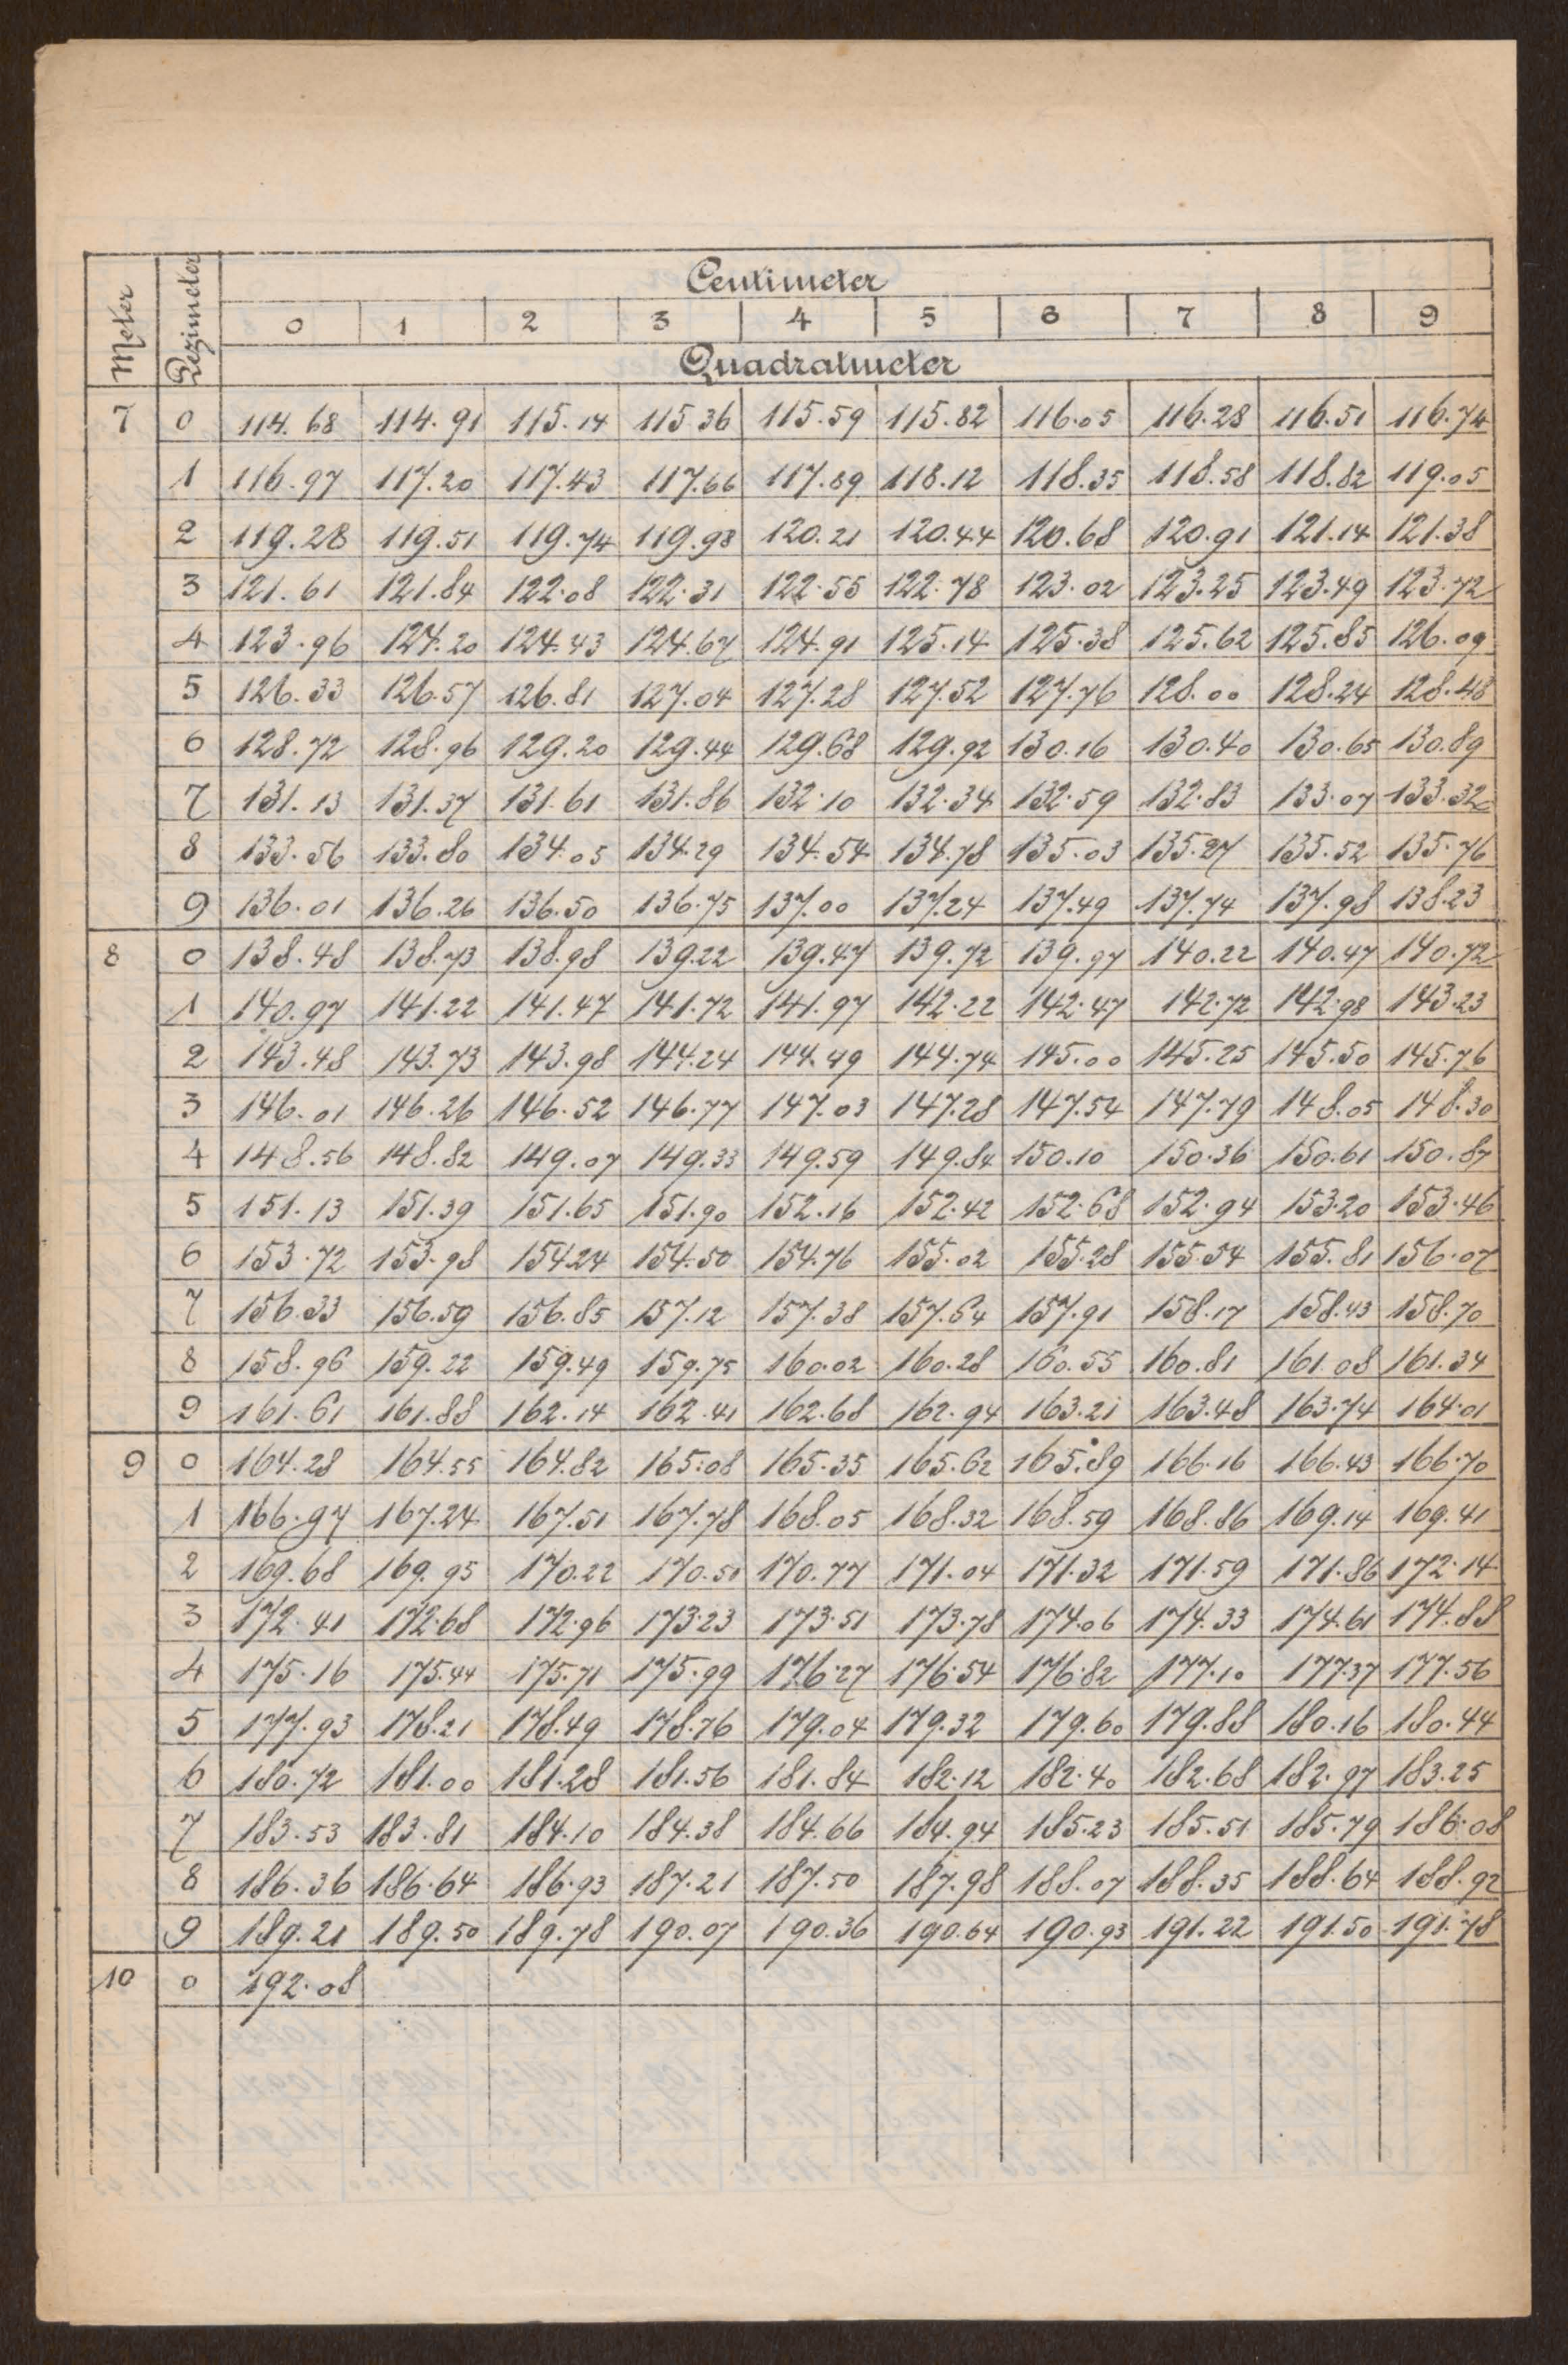 Meter Dezimeter Centimeter
0 1 2 3 4 5 6 7 8 9
Quadratmeter
7 0 114.68 114.91 115.14 115.36 115.59 115.82 116.05 116.28 116.51 116.74
1 116.97 117.20 117.43 117.66 117.89 118.12 118.35 118.58 118.82 119.05
2 119.28 119.51 119.74 119.98 120.21 120.44 120.68 120.91 121.14 121.38
3 121.61 121.84 122.08 122.31 122.55 122.78 123.02 123.25 123.49 123.72
4 123.96 124.20 124.43 124.67 124.91 125.14 125.38 125.62 125.85 126.09
5 126.33 126.57 126.81 127.04 127.28 127.52 127.76 128.00 128.24 128.48
6 128.72 128.96 129.20 129.44 129.68 129.92 130.16 130.40 130.65 130.89
7 131.13 131.37 131.61 131.86 132.10 132.34 132.59 132.83 133.07 133.32
8 133.56 133.80 134.05 134.29 134.54 134.78 135.03 135.27 135.52 135.76
9 136.01 136.26 136.50 136.75 137.00 137.24 137.49 137.74 137.98 138.23
8 0 138.48 138.73 138.98 139.22 139.47 139.72 139.97 140.22 140.47 140.72
1 140.97 141.22 141.47 141.72 141.97 142.22 142.47 142.72 142.98 143.23
2 143.48 143.73 143.98 144.24 144.49 144.74 145.00 145.25 145.50 145.76
3 146.01 146.26 146.52 146.77 147.03 147.28 147.54 147.79 148.05 148.30
4 148.56 148.82 149.07 149.33 149.59 149.84 150.10 150.36 150.61 150.87
5 151.13 151.39 151.65 151.90 152.16 152.42 152.68 152.94 153.20 153.46
6 153.72 153.98 154.24 154.50 154.76 155.02 155.28 155.54 155.81 156.07
7 156.33 156.59 156.85 157.12 157.38 157.64 157.91 158.17 158.43 158.70
8 158.96 159.22 159.49 159.75 160.02 160.28 160.55 160.81 161.08 161.34
9 161.61 161.88 162.14 162.41 162.68 162.94 163.21 163.48 163.74 164.01
9 0 164.28 164.55 164.82 165.08 165.35 165.62 165.89 166.16 166.43 166.70
1 166.97 167.24 167.51 167.78 168.05 168.32 168.59 168.86 169.14 169.41
2 169.68 169.95 170.22 170.50 170.77 171.04 171.32 171.59 171.86 172.14
3 172.41 172.68 172.96 173.23 173.51 173.78 174.06 174.33 174.61 174.88
4 175.16 175.44 175.71 175.99 176.27 176.54 176.82 177.10 177.37 177.56
5 177.93 178.21 178.49 178.76 179.04 179.32 179.60 179.88 180.16 180.44
6 180.72 181.00 181.28 181.56 181.84 182.12 182.40 182.68 182.97 183.25
7 183.53 183.81 184.10 184.38 184.66 184.94 185.23 185.51 185.79 186.08
8 186.36 186.64 186.93 187.21 187.50 187.98 188.07 188.35 188.64 188.92
9 189.21 189.50 189.78 190.07 190.36 190.64 190.93 191.22 191.50 191.78
10 0 192.08